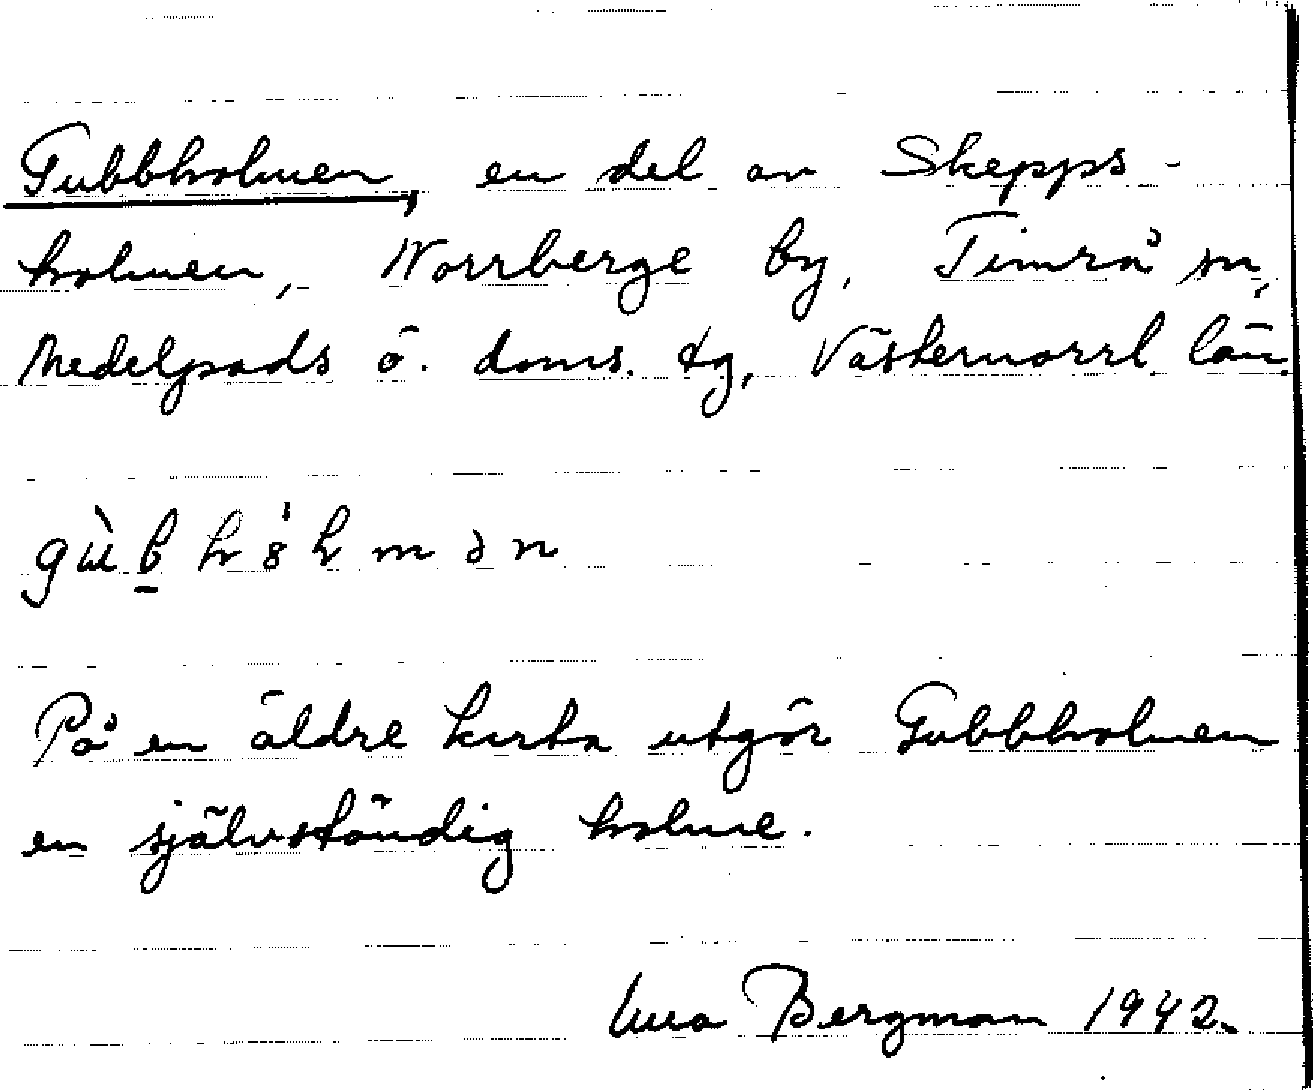 Gubbholmen, en del av Skepps-
holmen, Norrberge by, Timrå sn,
Medelpads ö. doms. tg, Västernorrl. län.
På en äldre karta utgör Gubbholmen
en självständig holme.
Bergman 1942.